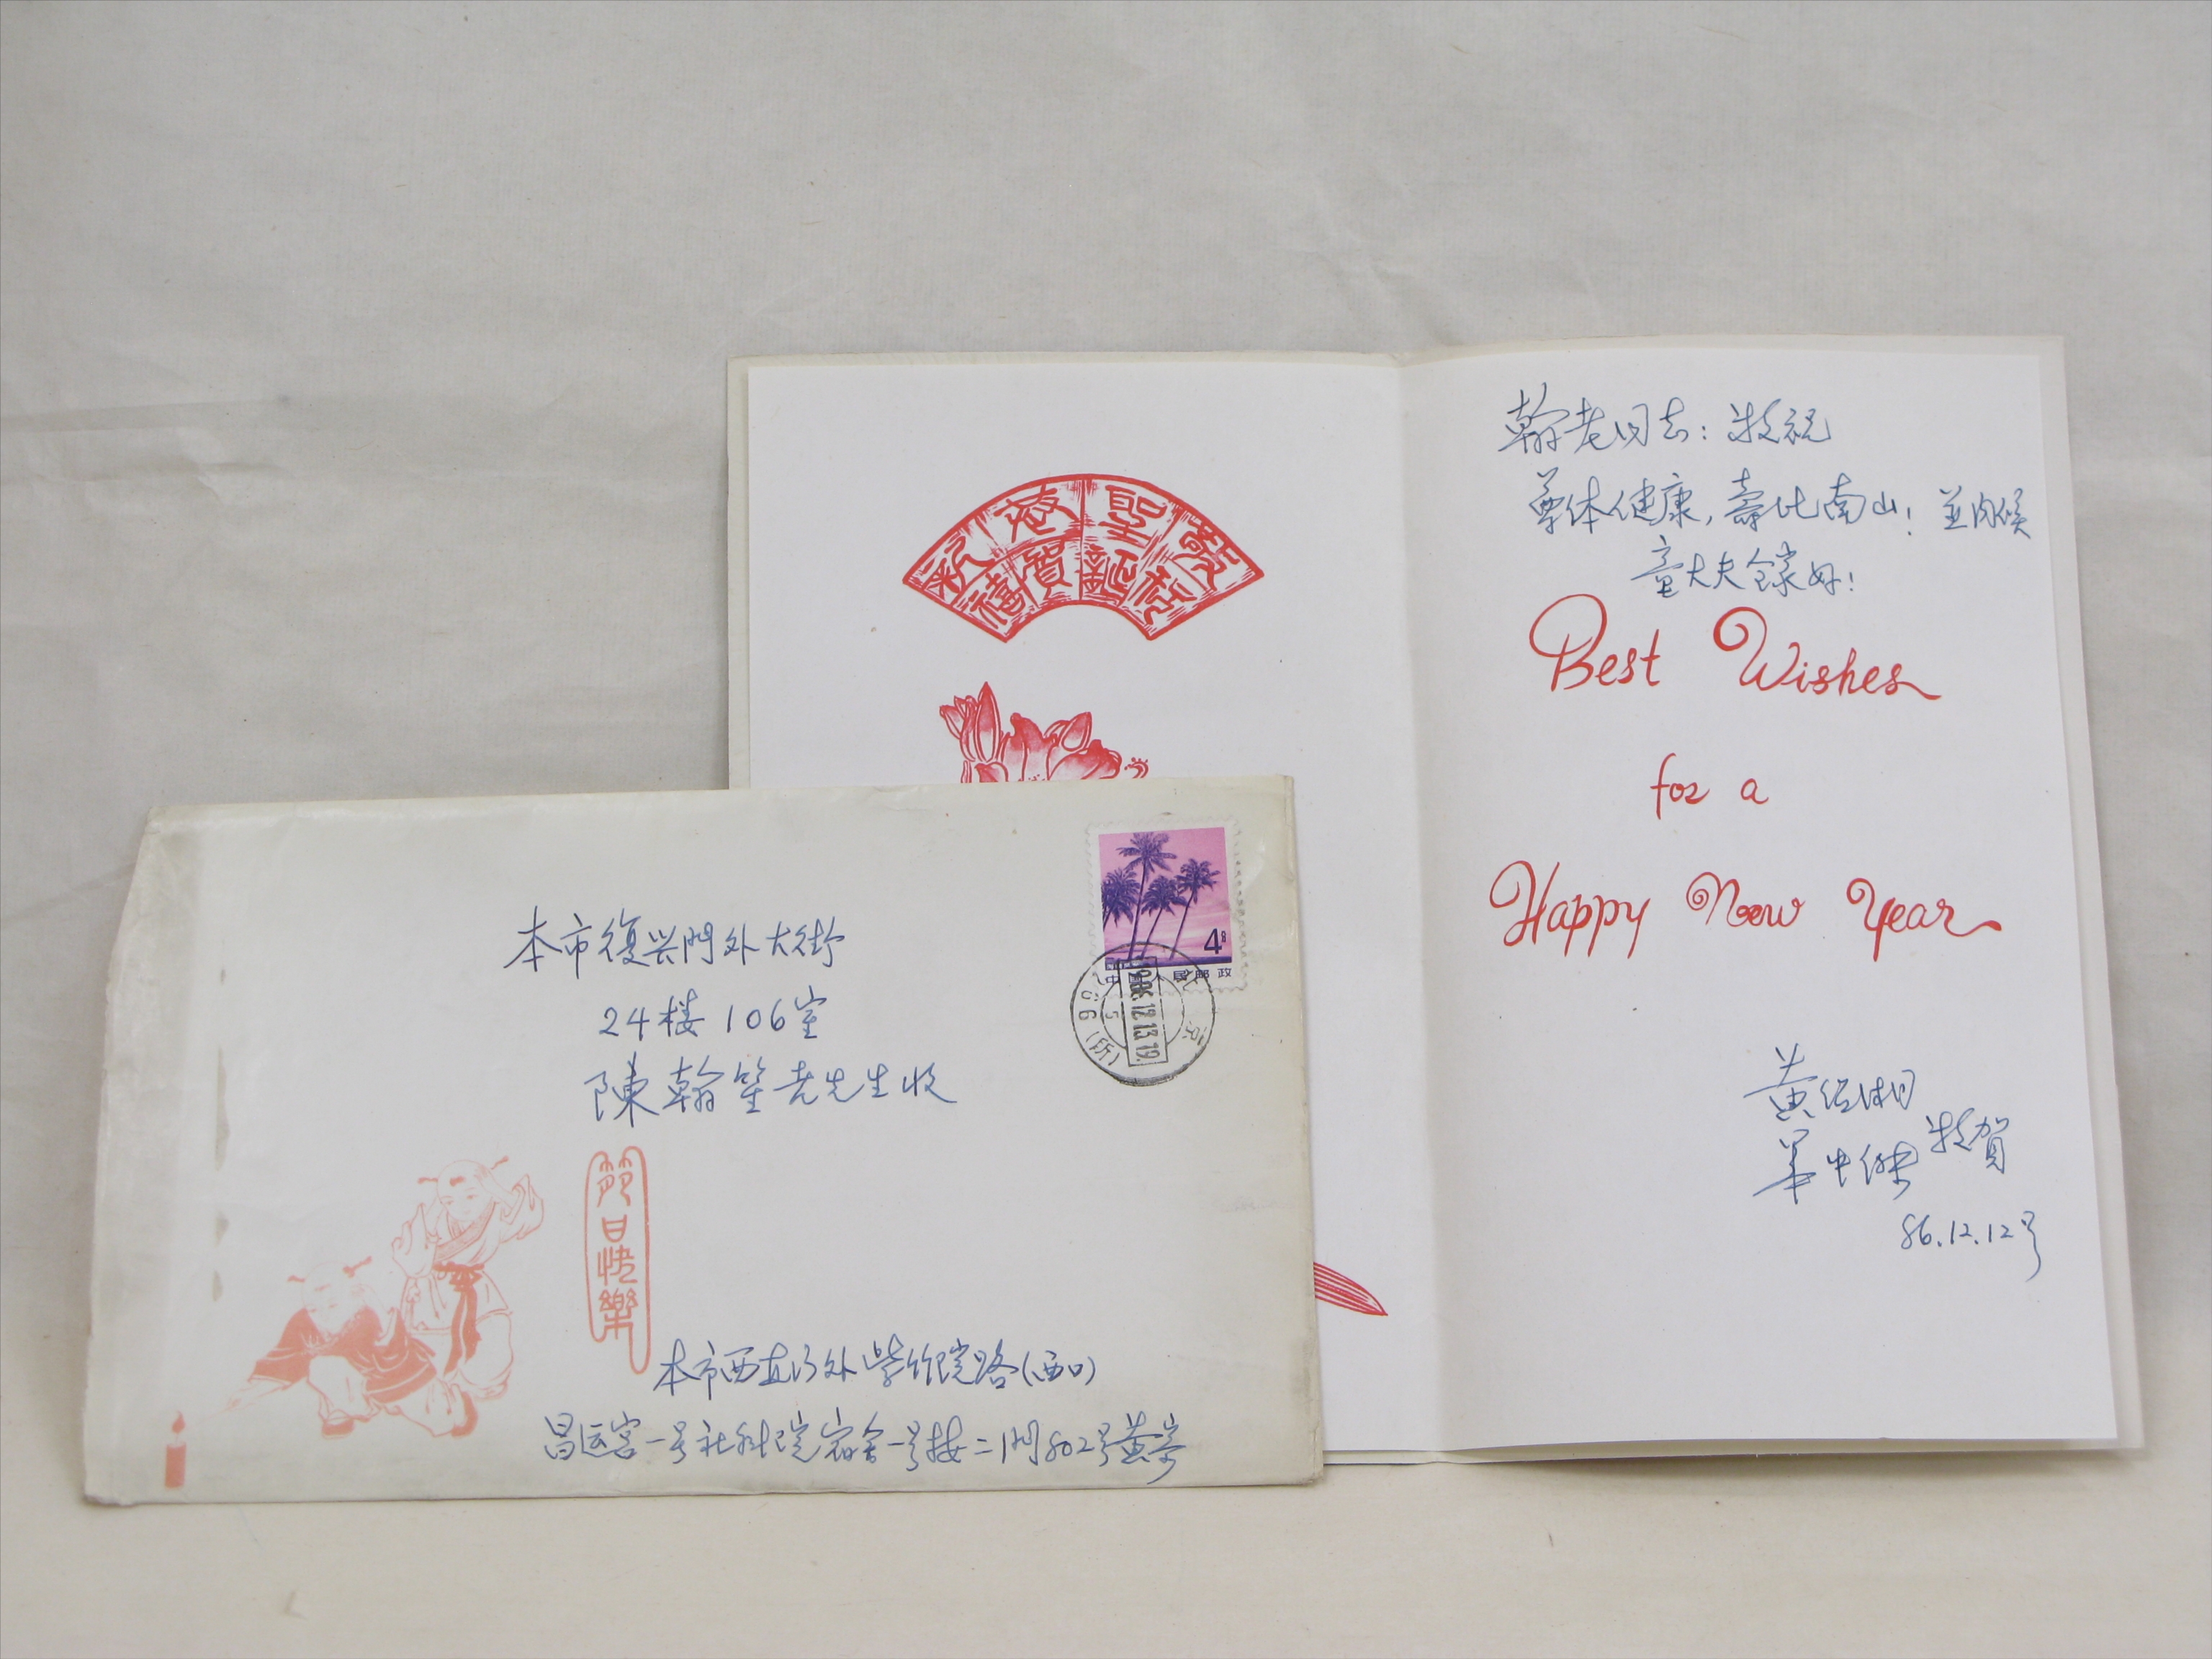 本市復兴門外大街
24楼106室
陳翰笙老先生收
節日快樂
本市西直门外紫竹院路(西口)
昌运宫一号社科院宿舍一号楼二門802号黄寄
4分
中国人民邮政
1986.12.13.19
北京
66(所)
5
恭祝
聖誕
敬
賀禧
翰老同志：敬祝
尊体健康，壽比南山！並内候
童大夫全家好！
Best Wishes
for a
Happy New Year
黄绍湘
毕中傑 敬賀
86.12.12号